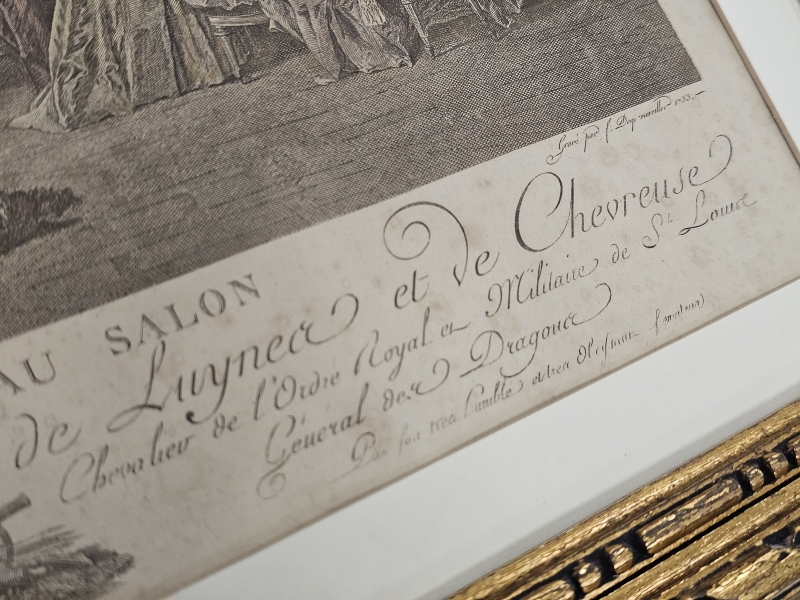 Gravé par f. 
AU SALON
de Luynes et de Chevreuse
Chevalier de l'Ordre Royal et Militaire de St. Louis
Général des Dragons
Par son tres humble et tres Obeissant Serviteur